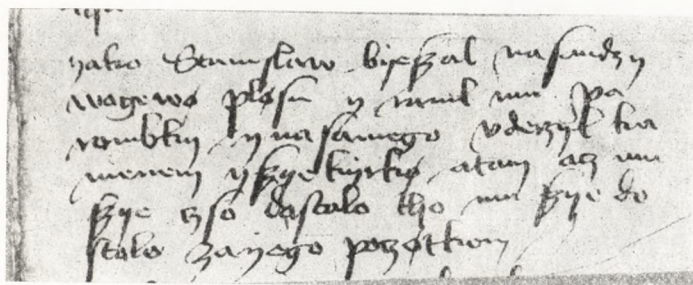 yako Stanislaw byeszal na sandzy
y ranil mu pa
rambky y na samego vderzyl ka
menem y szyekyrkø a tam acz mu
szye czso dostalo tho mu szye do
stalo za yego poczøtkem